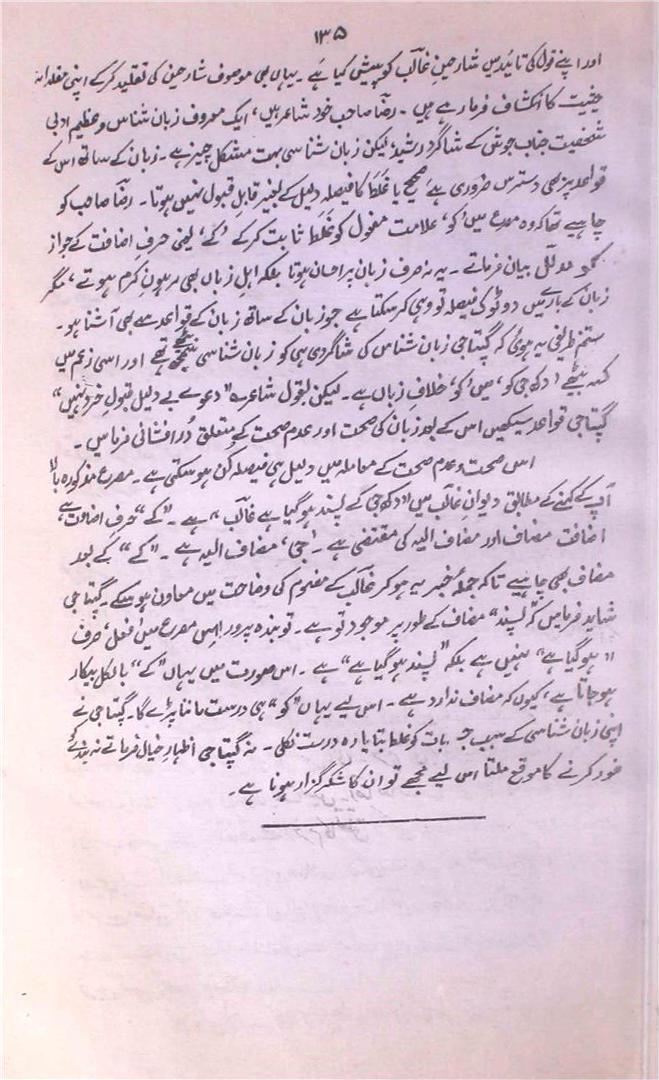 ۱۳۵
اور اپنے قول کی تائید میں شارحین غالب کو پیش کیا ہے۔ یہاں بھی موصوف شارحین کی تقلید کر کے اپنی مقلدانہ
حیثیت کا انکشاف فرما رہے ہیں۔ رضا صاحب خود شاعر ہیں، ایک معروف زبان شناس و عظیم ادبی
شخصیت جناب جوش کے شاگرد رشید، لیکن زبان شناسی بہت مشکل چیز ہے۔ زبان کے ساتھ اس کے
قواعد پر بھی دسترس ضروری ہے صحیح یا غلط کا فیصلہ دلیل کے بغیر قابلِ قبول نہیں ہوتا۔ رضا صاحب کو
چاہیے تھا کہ وہ مصرع میں 'کو' علامت مفعول کو غلط ثابت کر کے 'کے' یعنی حرفِ اضافت کے جواز
کو مدلل بیان فرماتے۔ یہ نہ صرف زبان پر احسان ہوتا بلکہ اہلِ زباں بھی مرہونِ کرم ہوتے، مگر
زبان کے بارے میں دو ٹوک فیصلہ تو وہی کر سکتا ہے جو زبان کے ساتھ زبان کے قواعد سے بھی آشنا ہو۔
ستم ظریفی یہ ہوئی کہ گپتا جی زبان شناس کی شاگردی ہی کو زبان شناسی سمجھ بیٹھے تھے اور اسی زعم میں
کہہ بیٹھے 'دکھ جی کو' میں 'کو' خلافِ زباں ہے۔ لیکن بقول شاعر "دعوے بے دلیل قبولِ خرد نہیں"
گپتا جی قواعد سیکھیں اس کے بعد زبان کی صحت اور عدم صحت کے متعلق دُر افشانی فرمائیں۔
اس صحت و عدم صحت کے معاملہ میں دلیل ہی فیصلہ کن ہو سکتی ہے۔ مصرع مذکورہ بالا
آپ کے کہنے کے مطابق دیوانِ غالب میں "دکھ جی کے پسند ہو گیا ہے غالب" ہے۔ "کے" حرفِ اضافت ہے
اضافت مضاف اور مضاف الیہ کی مقتضی ہے۔ 'جی' مضاف الیہ ہے۔ "کے" کے بعد
مضاف بھی چاہیے تاکہ جملۂ خبریہ ہو کر غالب کے مفہوم کی وضاحت میں معاون ہو سکے۔ گپتا جی
شاید فرمائیں کہ "پسند" مضاف کے طور پر موجود تو ہے۔ تو بندہ پرور اس مصرع میں 'فعل' صرف
"ہو گیا ہے" نہیں ہے بلکہ "پسند ہو گیا ہے" ہے۔ اس صورت میں یہاں "کے" بالکل بیکار
ہو جاتا ہے، کیوں کہ مضاف ندارد ہے۔ اس لیے یہاں "کو" ہی درست ماننا پڑے گا۔ گپتا جی نے
اپنی زبان شناسی کے سبب جس بات کو غلط بتایا وہ درست نکلی۔ نہ گپتا جی اظہارِ خیال فرماتے نہ بندے کو
غور کرنے کا موقع ملتا اس لیے مجھے تو ان کا شکر گزار ہونا ہے۔